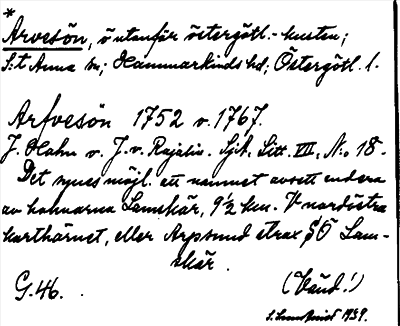 *
Arvesön, ö utanför östergötl.-kusten;
S:t Anna sn; Hammarkinds hd; Östergötl. l.
Arfvesön 1752 v. 1767.
J. Hahn v. J. v. Rajalin. Sjök. Litt. VIII, N:o 18-
Det synes möjl. att namnet avsett endera
av holmarna Lamskär, 9½ km. V nordöstra
karthörnet, eller Arpsund strax SÖ Lam-
skär.
G. 46. (Vänd!)
1939.